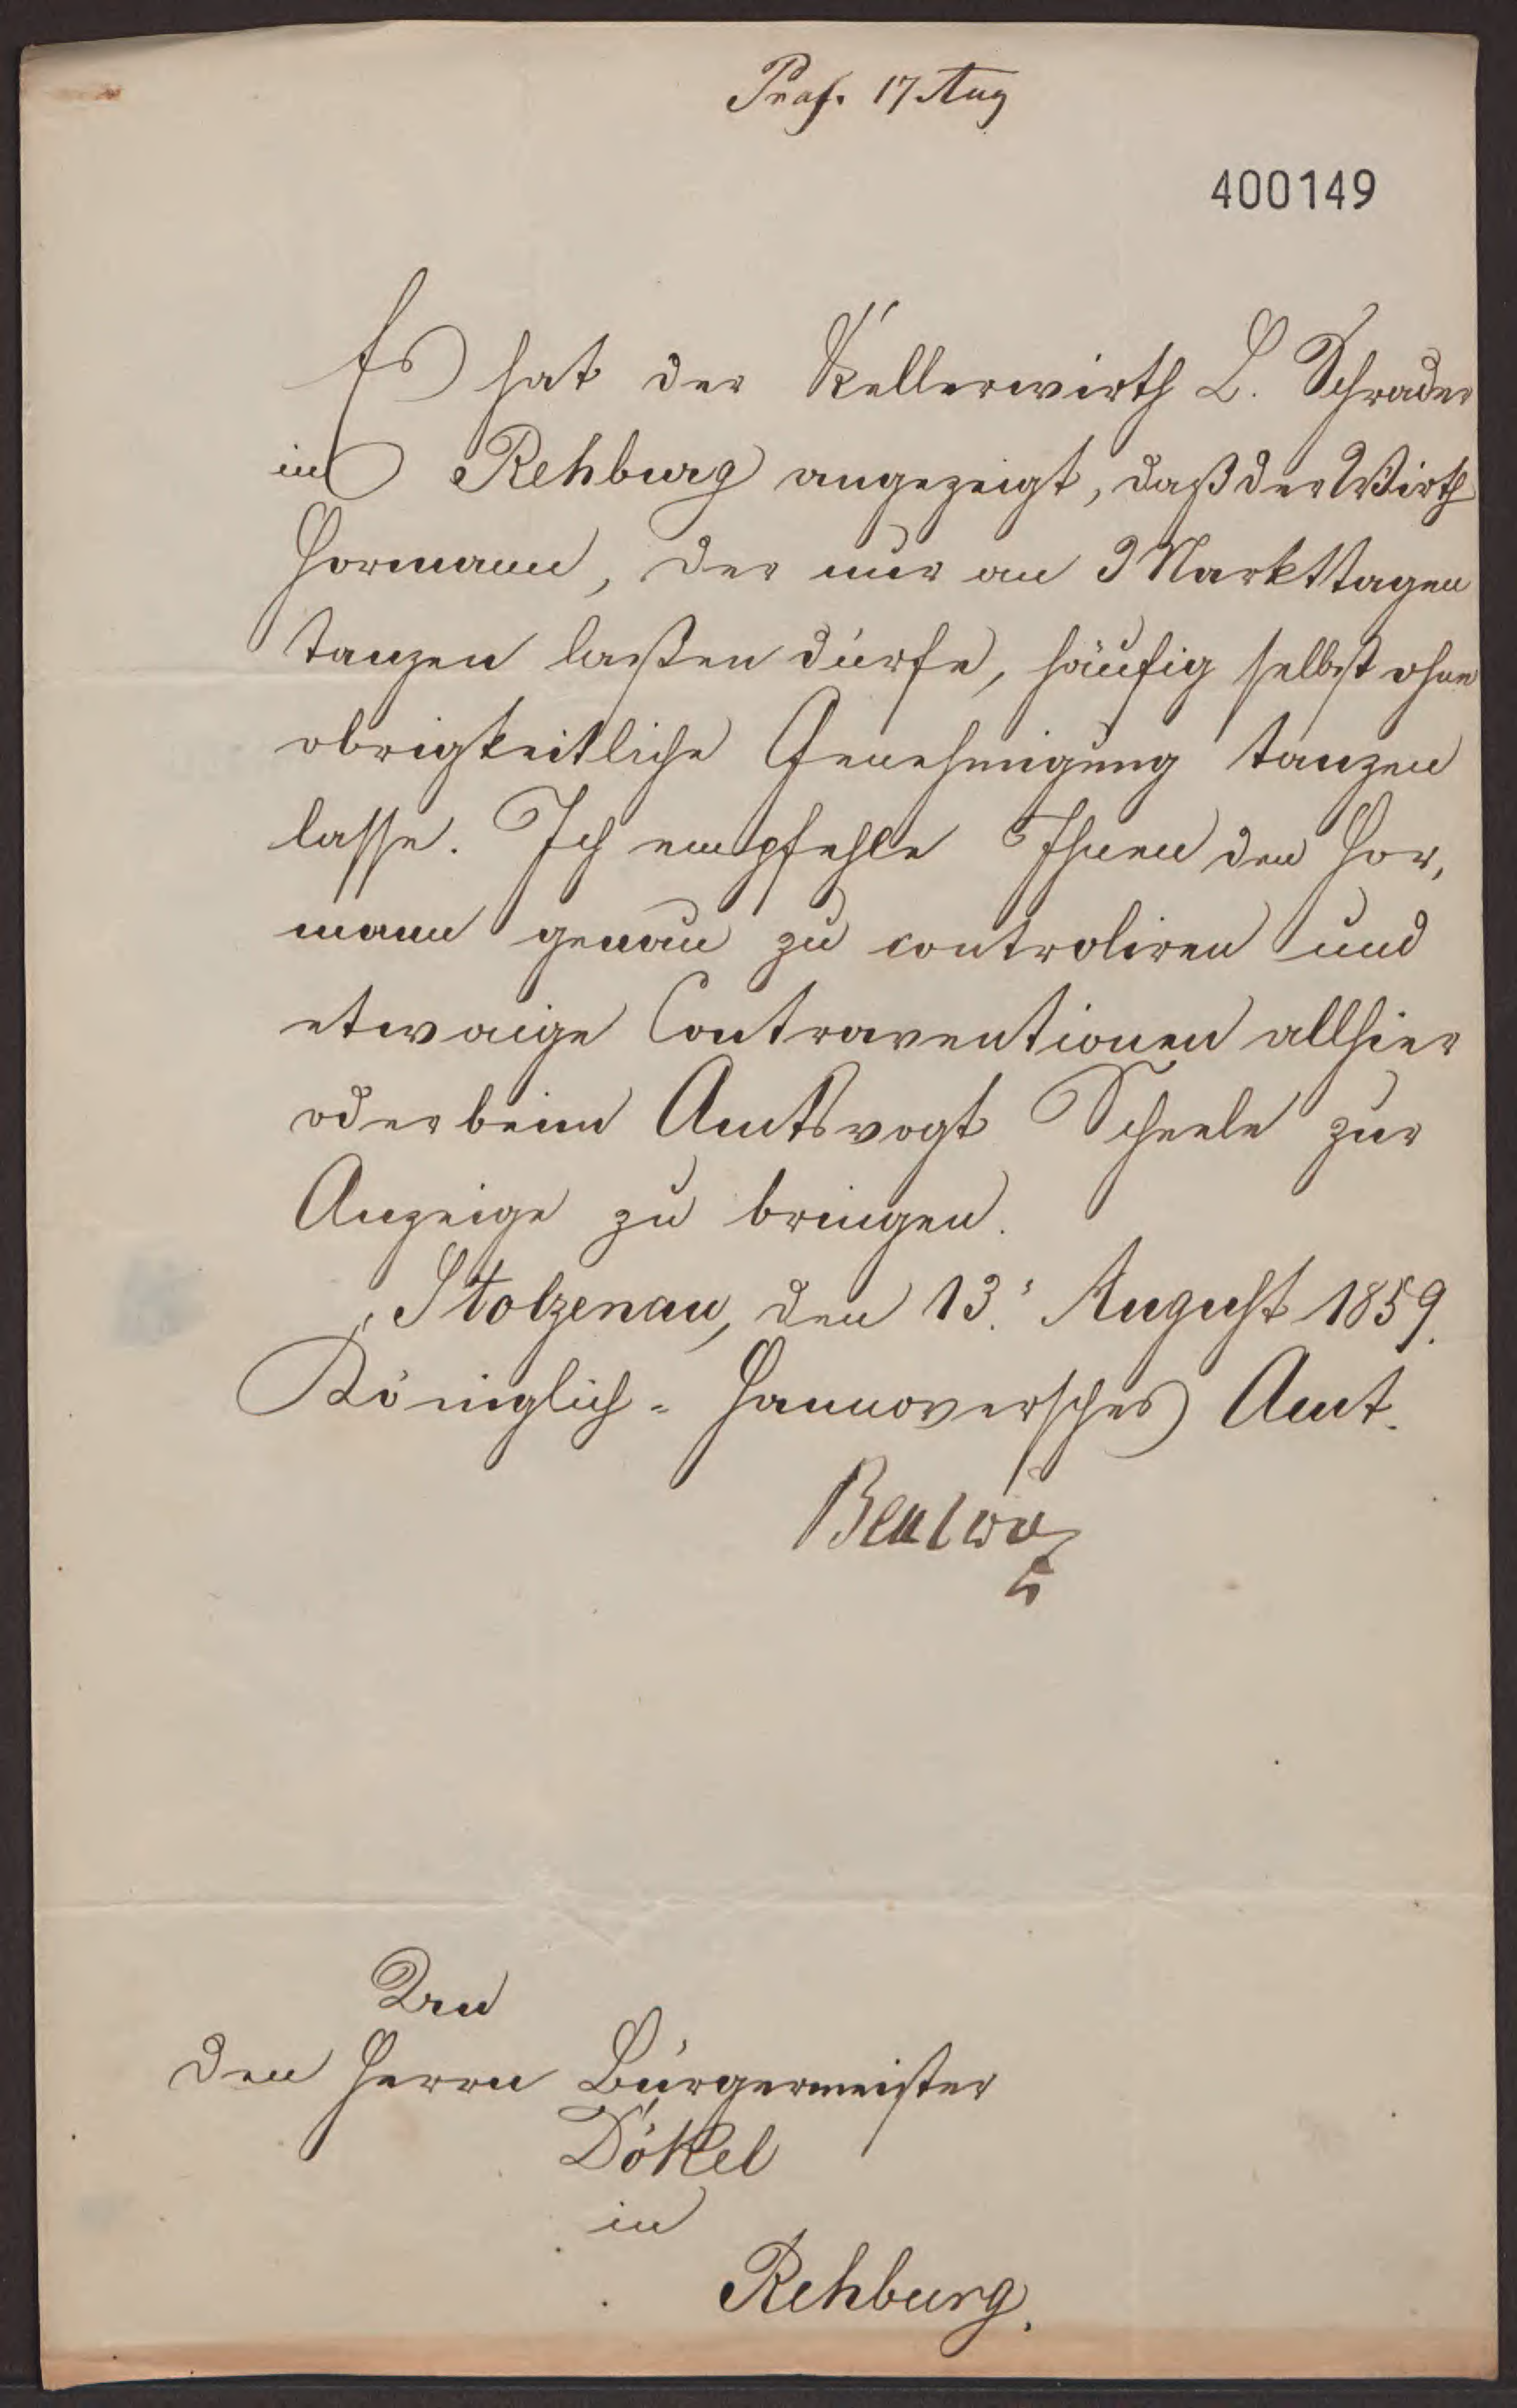 Präs. 17 Aug
400149
Es hat der Kellerwirth L. Schrader
in Rehburg angezeigt, daß der Wirth
Hormann, der nur an 3 Markttagen
tanzen laßen dürfe, häufig selbst ohne
obrigkeitliche Genehmigung tanzen
lasse. Ich empfehle Ihnen den Hor,
mann genau zu controliren und
etwaige Contraventionen allhier
oder beim Amtsvogt Scheele zur
Anzeige zu bringen.
Stolzenau, den 13. August 1859.
Königlich-Hannoversches Amt.
An
den Herrn Bürgermeister
Dökel
in
Rehburg.